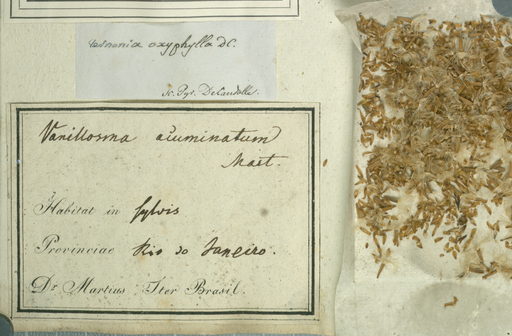 Vernonia oxyphylla DC.
sc. Pyr. DeCandolle.
Vanillosma acuminatum
Mart.
Habitat in sylvis
Provinciae Rio do Janeiro.
Dr. Martius Iter Brasil.